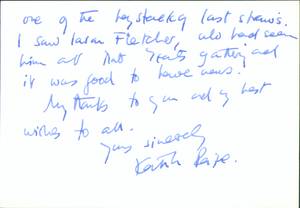 one of the haystacks last straws.
I saw Ian Fletcher, who had seen
him at that Yeats gathering and
it was good to have news.
My thanks to you and my best
wishes to all.
Yours sincerely
Kathleen Raine.